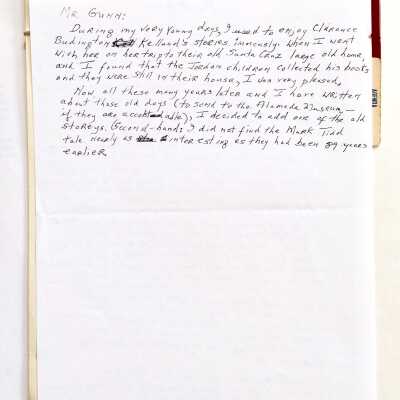 Mr. Gunn:
During my very young days, I used to enjoy Clarence
Budington Kelland's stories immensely. When I went
with her on her trip to their old Santa Cruz large old home,
and I found that the Jordan children collected his books
and they were still in their house, I was very pleased.
Now all these many years later and I have written
about those old days (to send to the Alameda Museum —
if they are acceptable), I decided to add one of the old
storeys. Second-hand: I did not find the Mark Tidd
tale nearly as interesting as they had been 89 years
earlier.